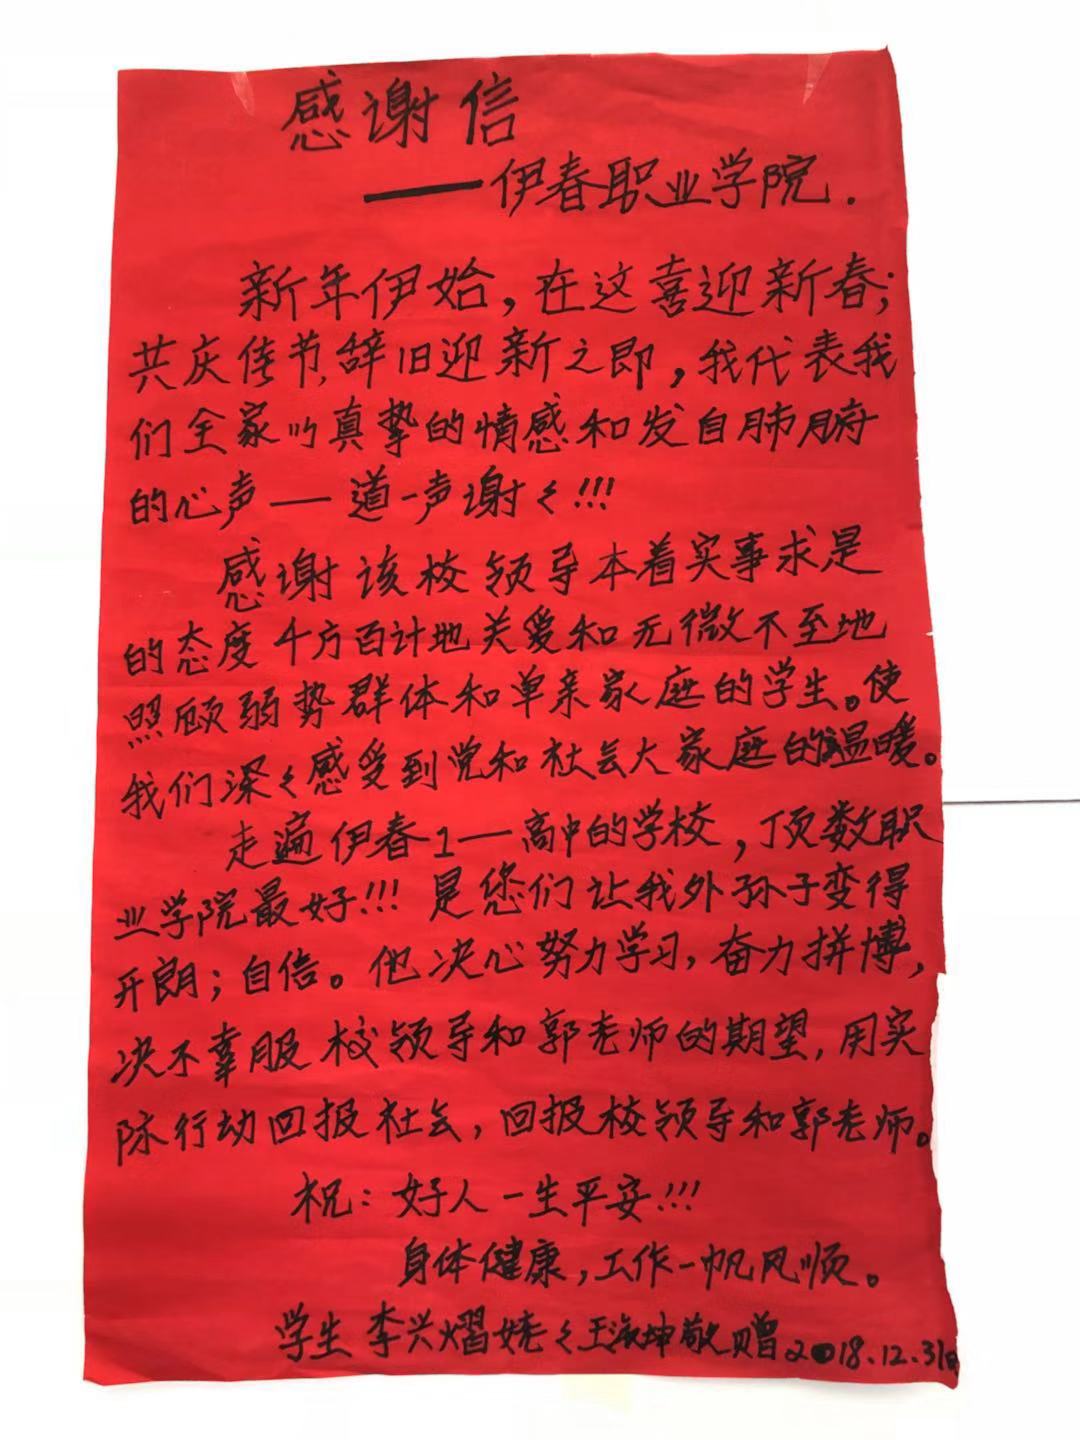 感谢信
——伊春职业学院.
新年伊始，在这喜迎新春；
共庆佳节、辞旧迎新之即，我代表我
们全家以真挚的情感和发自肺腑
的心声——道一声谢々!!!
感谢该校领导本着实事求是
的态度千方百计地关爱和无微不至地
照顾弱势群体和单亲家庭的学生。使
我们深々感受到党和社会大家庭的温暖。
走遍伊春1—高中的学校，顶数职
业学院最好!!!是您们让我外孙子变得
开朗；自信。他决心努力学习，奋力拼博，
决不辜服校领导和郭老师的期望，用实
际行动回报社会，回报校领导和郭老师。
祝：好人一生平安!!!
身体健康，工作一帆风顺。
学生李兴熠姥々王淑坤敬赠2018.12.31日